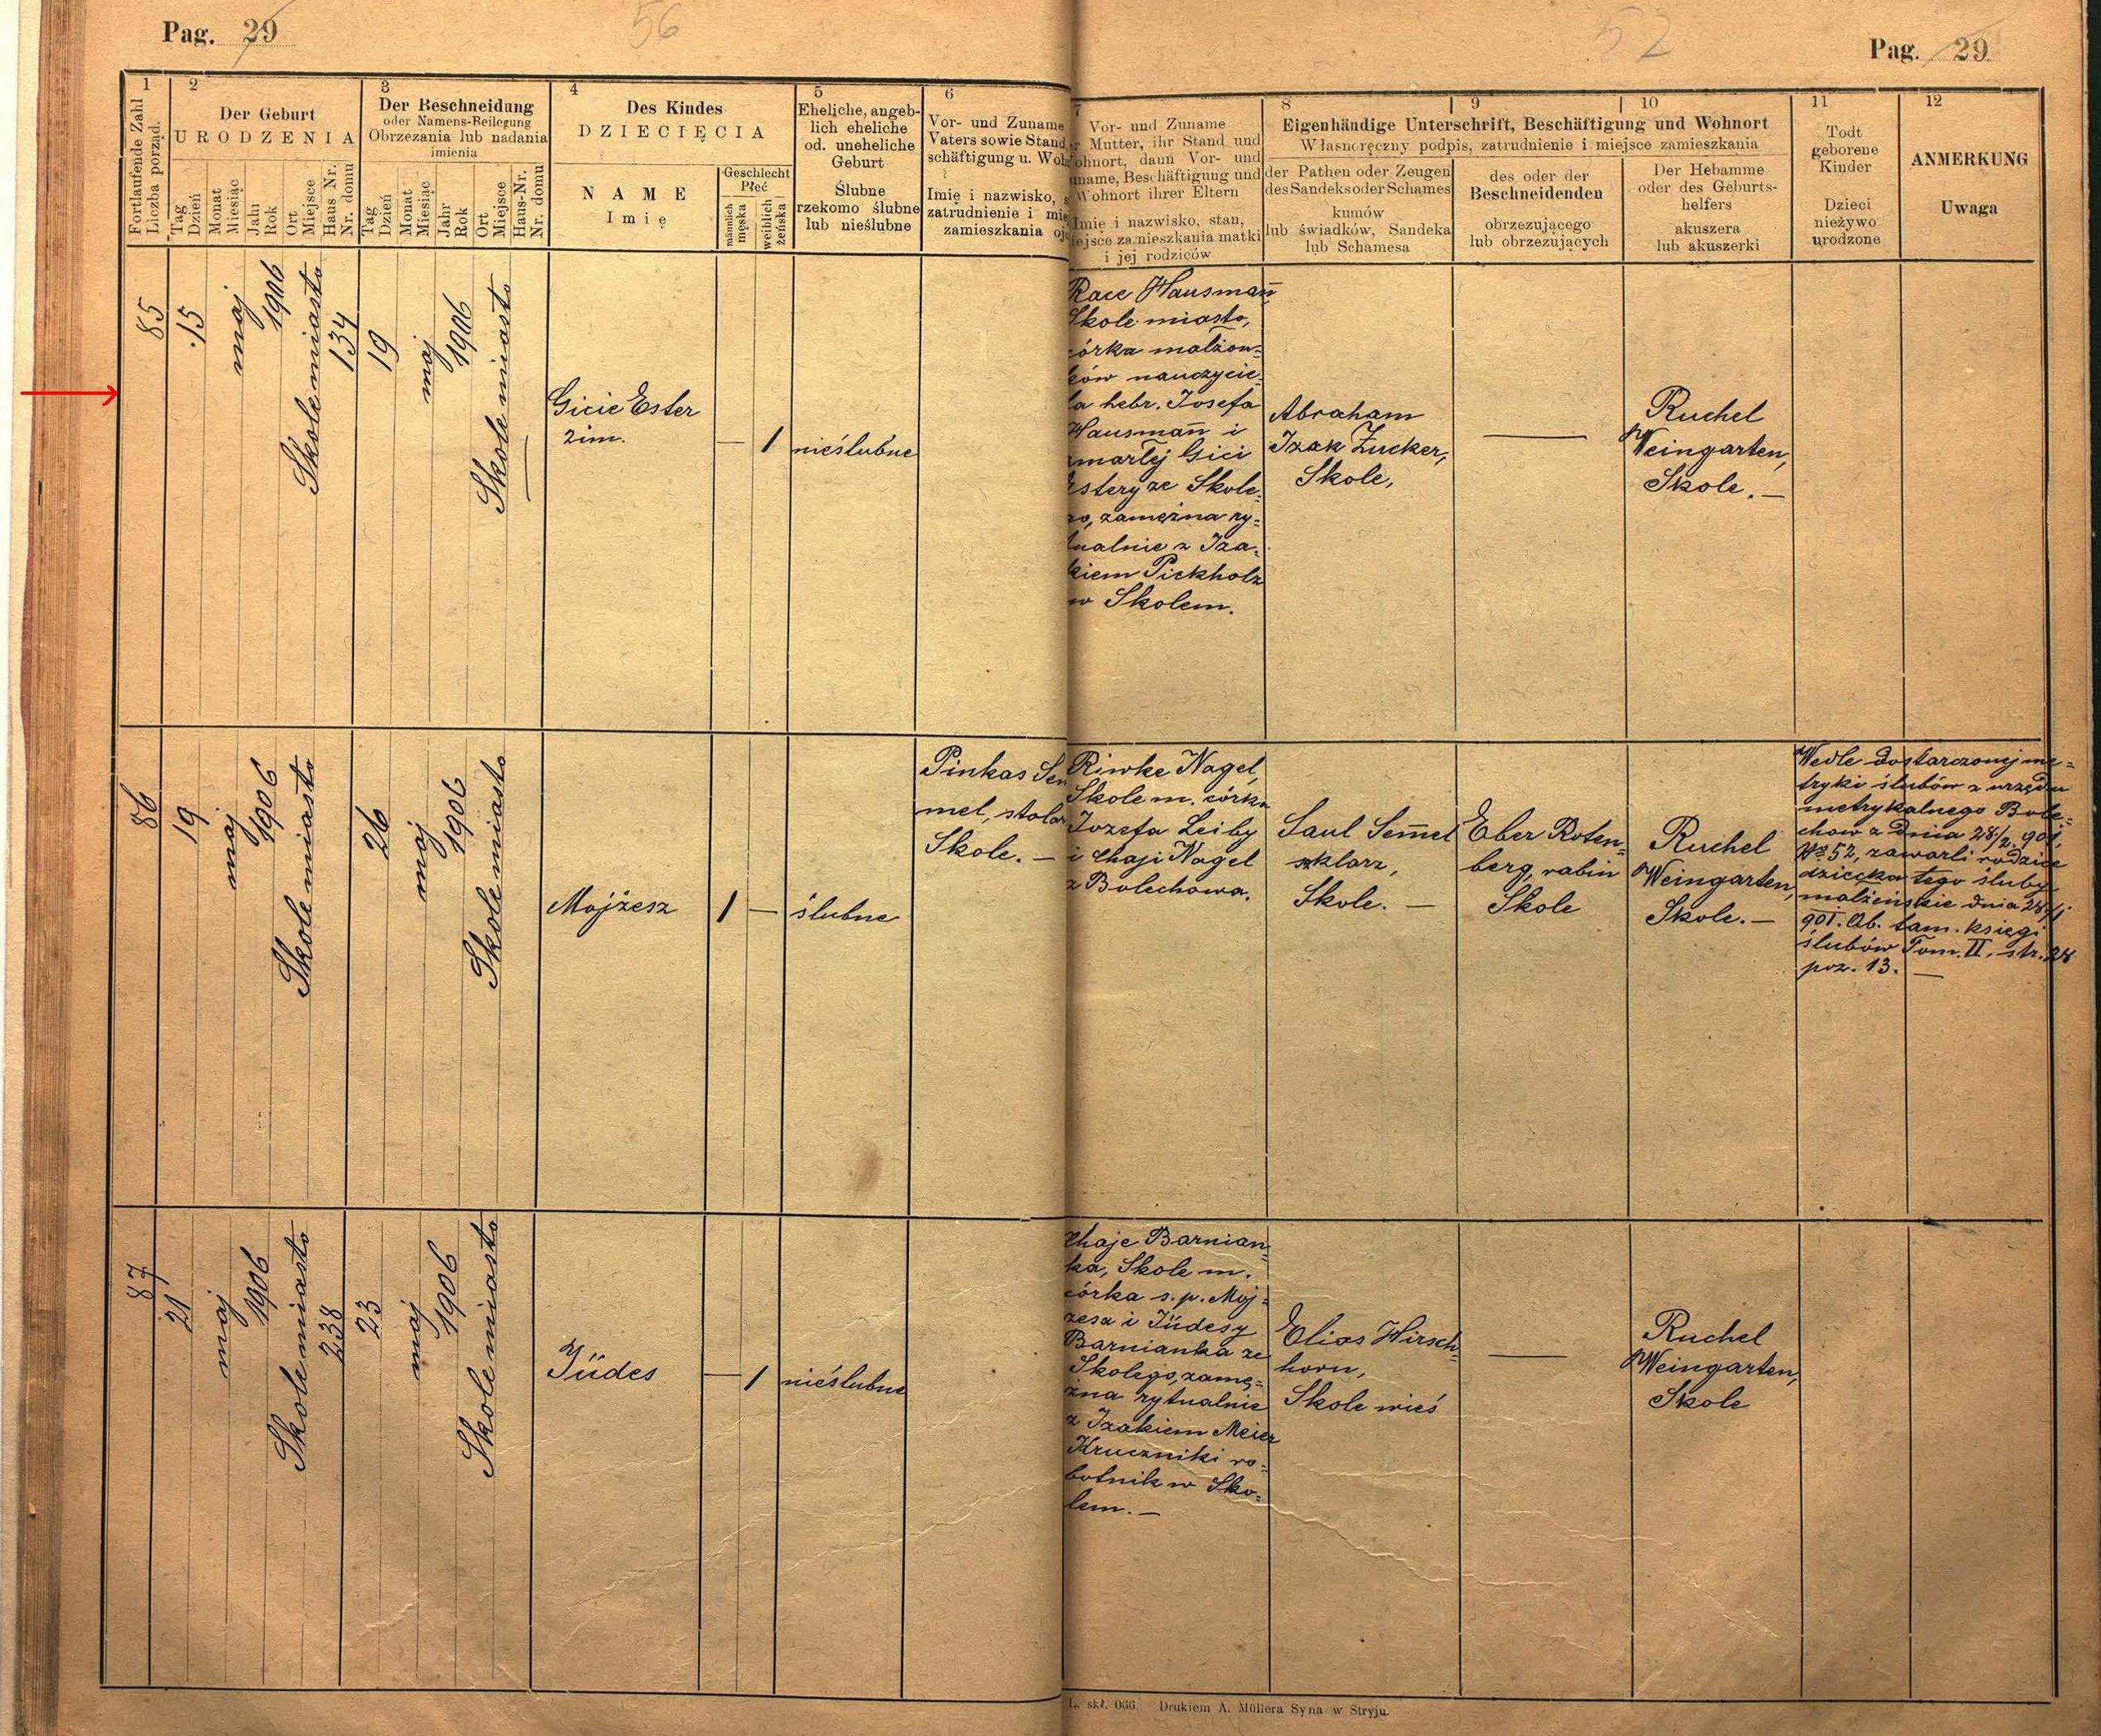 Pag. 29
56
52
Pag. 29
1
Fortlaufende Zahl
Liczba porząd.
2
Der Geburt
URODZENIA
Tag
Dzień
Monat
Miesiąc
Jahr
Rok
Ort
Miejsce
Haus Nr.
Nr. domu
3
Der Beschneidung
oder Namens-Beilegung
Obrzezania lub nadania
imienia
Tag
Dzień
Monat
Miesiąc
Jahr
Rok
Ort
Miejsce
Haus-Nr.
Nr. domu
4
Des Kindes
DZIECIĘCIA
NAME
Imię
Geschlecht
Płeć
männlich
męska
weiblich
żeńska
5
Eheliche, angeb-
lich eheliche
od. uneheliche
Geburt
Ślubne
rzekomo ślubne
lub nieślubne
6
Vor- und Zuname
Vaters sowie Stand,
schäftigung u. Woh
Imię i nazwisko, s
zatrudnienie i mie
zamieszkania oj
7
Vor- und Zuname
r Mutter, ihr Stand und
ohnort, dann Vor- und
name, Beschäftigung und
Wohnort ihrer Eltern
Imię i nazwisko, stan,
iejsce zamieszkania matki
i jej rodziców
8
9
10
Eigenhändige Unterschrift, Beschäftigung und Wohnort
Własnoręczny podpis, zatrudnienie i miejsce zamieszkania
der Pathen oder Zeugen
des Sandeks oder Schames
kumów
lub świadków, Sandeka
lub Schamesa
des oder der
Beschneidenden
obrzezującego
lub obrzezujących
Der Hebamme
oder des Geburts-
helfers
akuszera
lub akuszerki
11
Todt
geborene
Kinder
Dzieci
nieżywo
urodzone
12
ANMERKUNG
Uwaga
85
15
maj
1906
Skole miasto
134
19
maj
1906
Skole miasto
Gicie Ester
zim.
— 1
nieślubne
Race Hausmañ
Skole miasto,
córka małżon=
ków nauczycie=
la hebr. Josefa
Hausmañ i
zmarłej Gici
Estery ze Skole=
go, zamężna ry=
tualnie z Iza=
kiem Pickholz
w Skolem.
Abraham
Izak Zucker,
Skole,
—
Ruchel
Weingarten,
Skole. —
86
19
maj
1906
Skole miasto
26
maj
1906
Skole miasto
Mojżesz
1 —
ślubne
Pinkas Sem
mel, stolar
Skole. —
Riwke Nagel,
Skole m. córka
Jozefa Leiby
i Chaji Nagel
z Bolechowa.
Saul Sem̄el
szklarz,
Skole. —
Eber Roten=
berg, rabin
Skole
Ruchel
Weingarten,
Skole. —
Wedle dostarczonej me=
tryki ślubów z urzędu
metrykalnego Bole=
chow z dnia 28/2. 901,
№ 52, zawarli rodzice
dziecka tego śluby
małżeńskie dnia
901. Ob. tam. księgi
ślubów Tom. II, str. 28
poz. 13. —
87
21
maj
1906
Skole miasto
238
23
maj
1906
Skole miasto
Jüdes
— 1
nieślubne
Chaje Barnian=
ka, Skole m.
córka s. p. Moj=
zesa i Jüdesy
Barnianka ze
Skolego, zamę=
zna rytualnie
z Izakiem Meier
Kruczniki ro=
botnik w Sko=
lem. —
Elias Hirsch=
horn,
Skole wieś
—
Ruchel
Weingarten,
Skole
L. skł. 066 Drukiem A. Müllera Syna w Stryju.